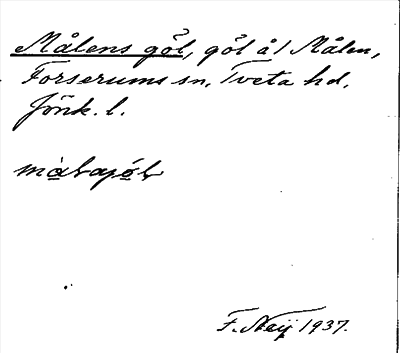 Målens göl, göl å / Målen,
Forserums sn, Tveta hd,
Jönk. l.
F. Neij 1937.